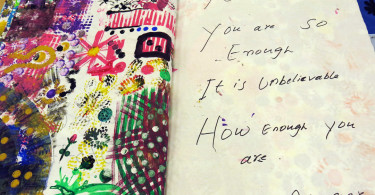 You are so
Enough
It is Unbelievable
How Enough you
are